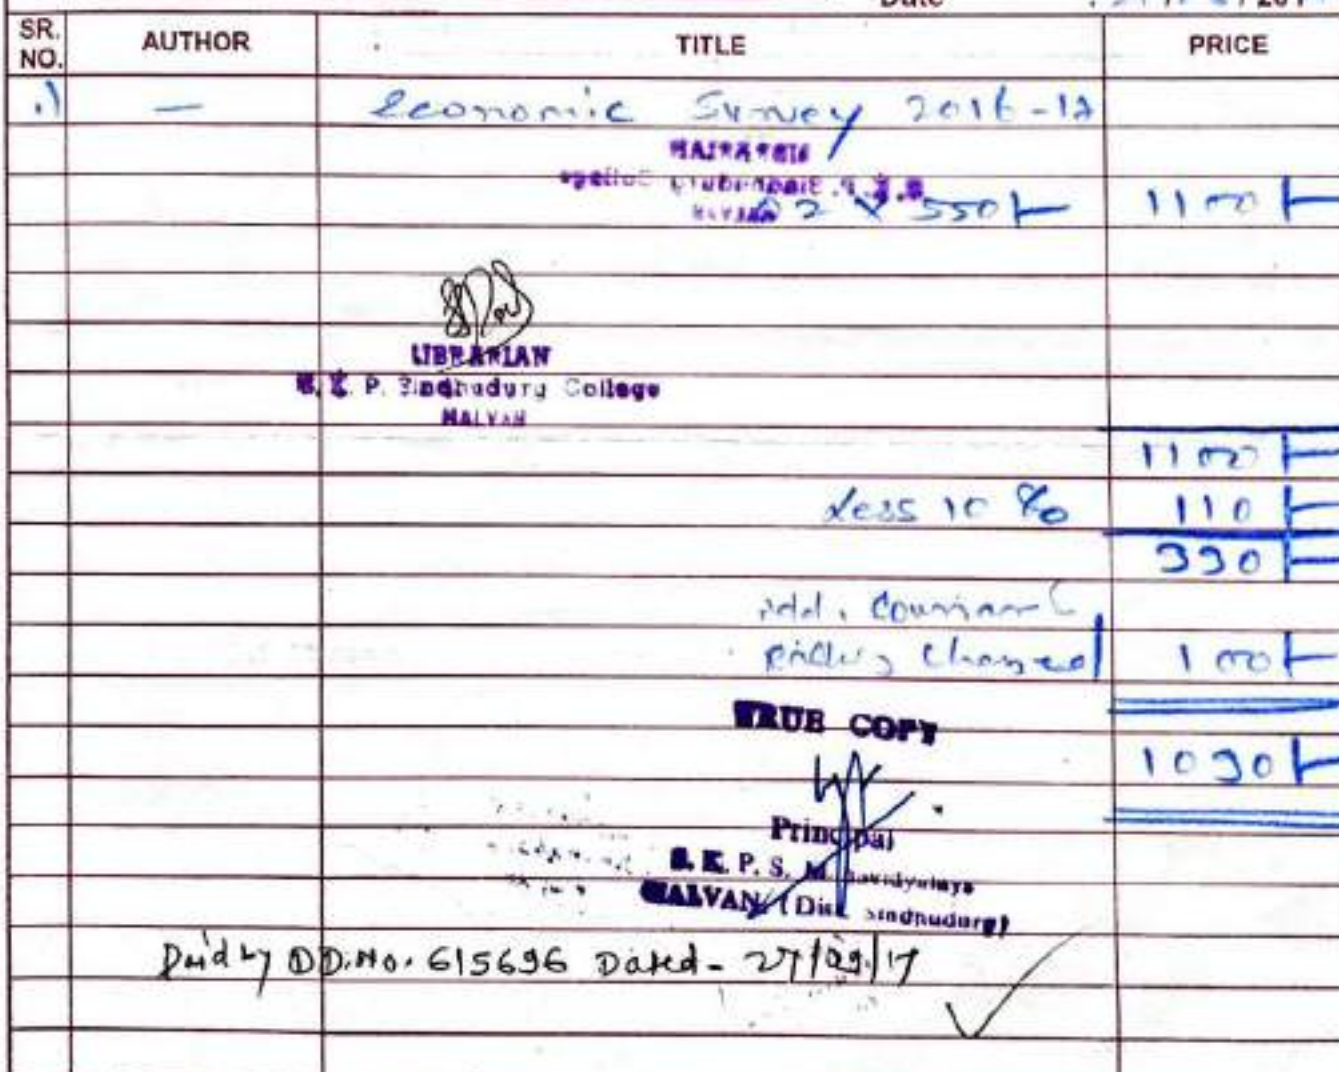 Date
SR. NO. AUTHOR TITLE PRICE
1) — Economic Survey 2016-17
02 X 550/- 1100/-
LIBRARIAN
S. K. P. Sindhudurg College
MALVAN
1100/-
Less 10 % 110/-
990/-
Add. Courier &
Charges 100/-
TRUE COPY
1090/-
Principal
S. K. P. S. Mahavidyalaya
MALVAN. (Dist. Sindhudurg)
Paid by DD.No. 615696 Dated - 27/09/17